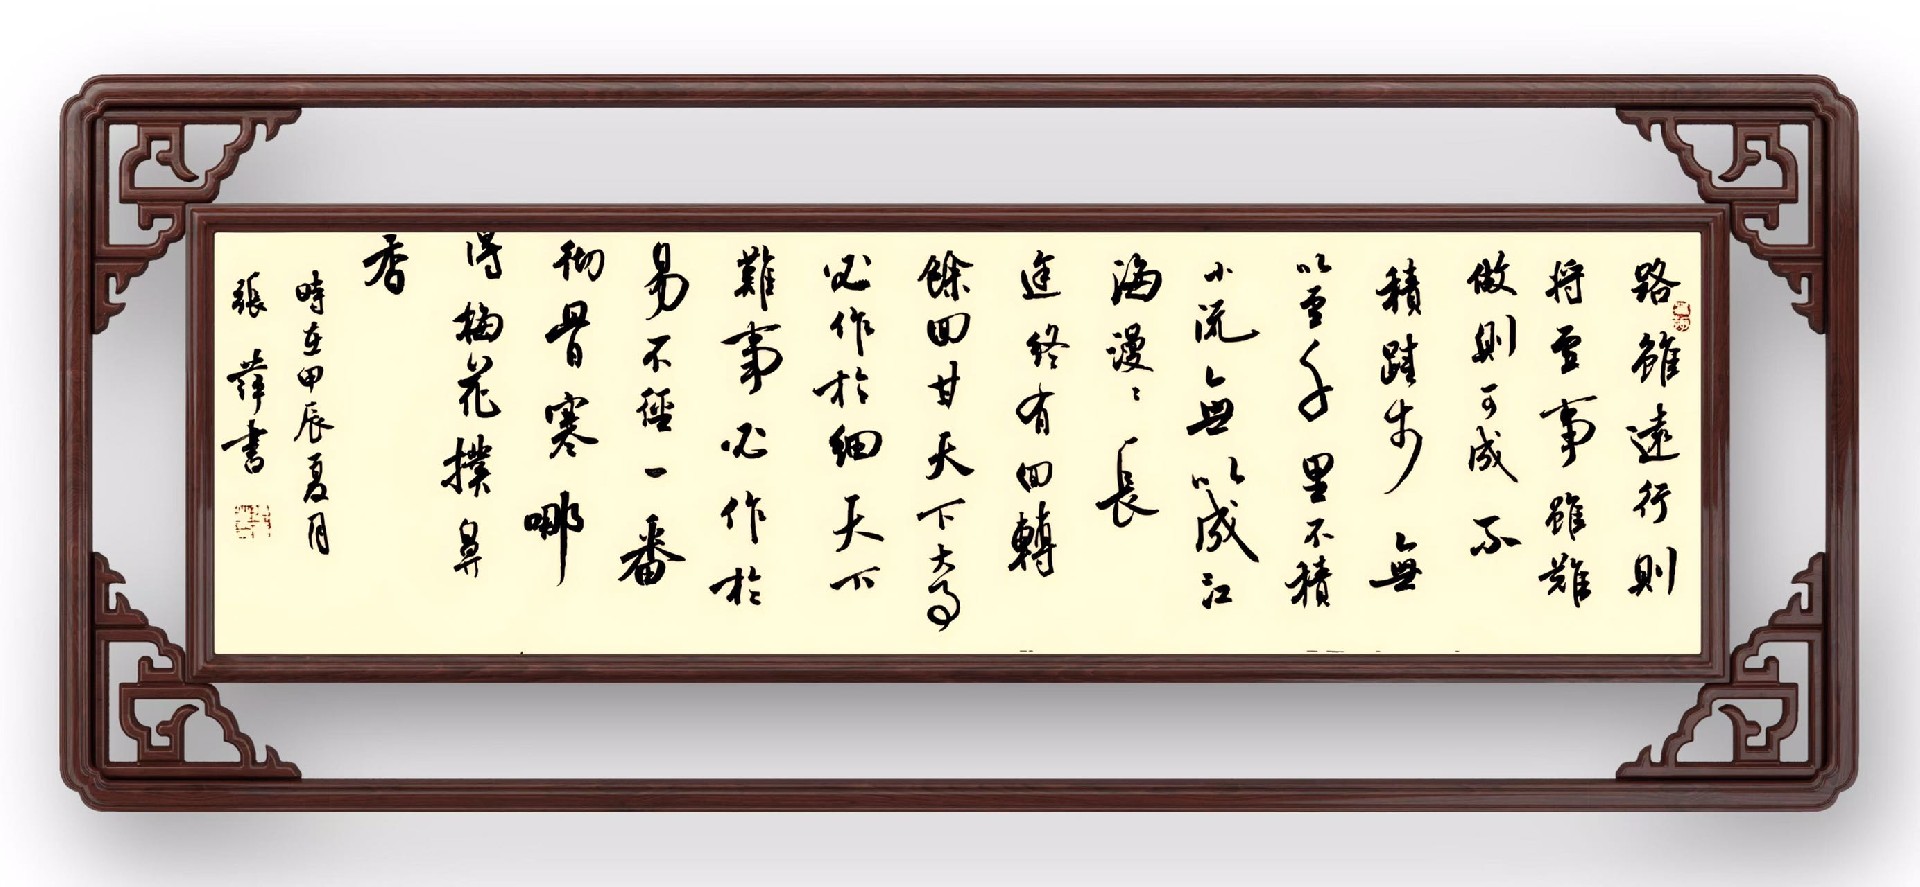 路雖遠行則
将至事雖難
做則可成不
積跬步無
以至千里不積
小流無以成江
海漫〻長
途終有回轉
餘回甘天下大事
必作於細天下
難事必作於
易不徑一番
彻骨寒哪
得梅花撲鼻
香
時在甲辰夏月
張書